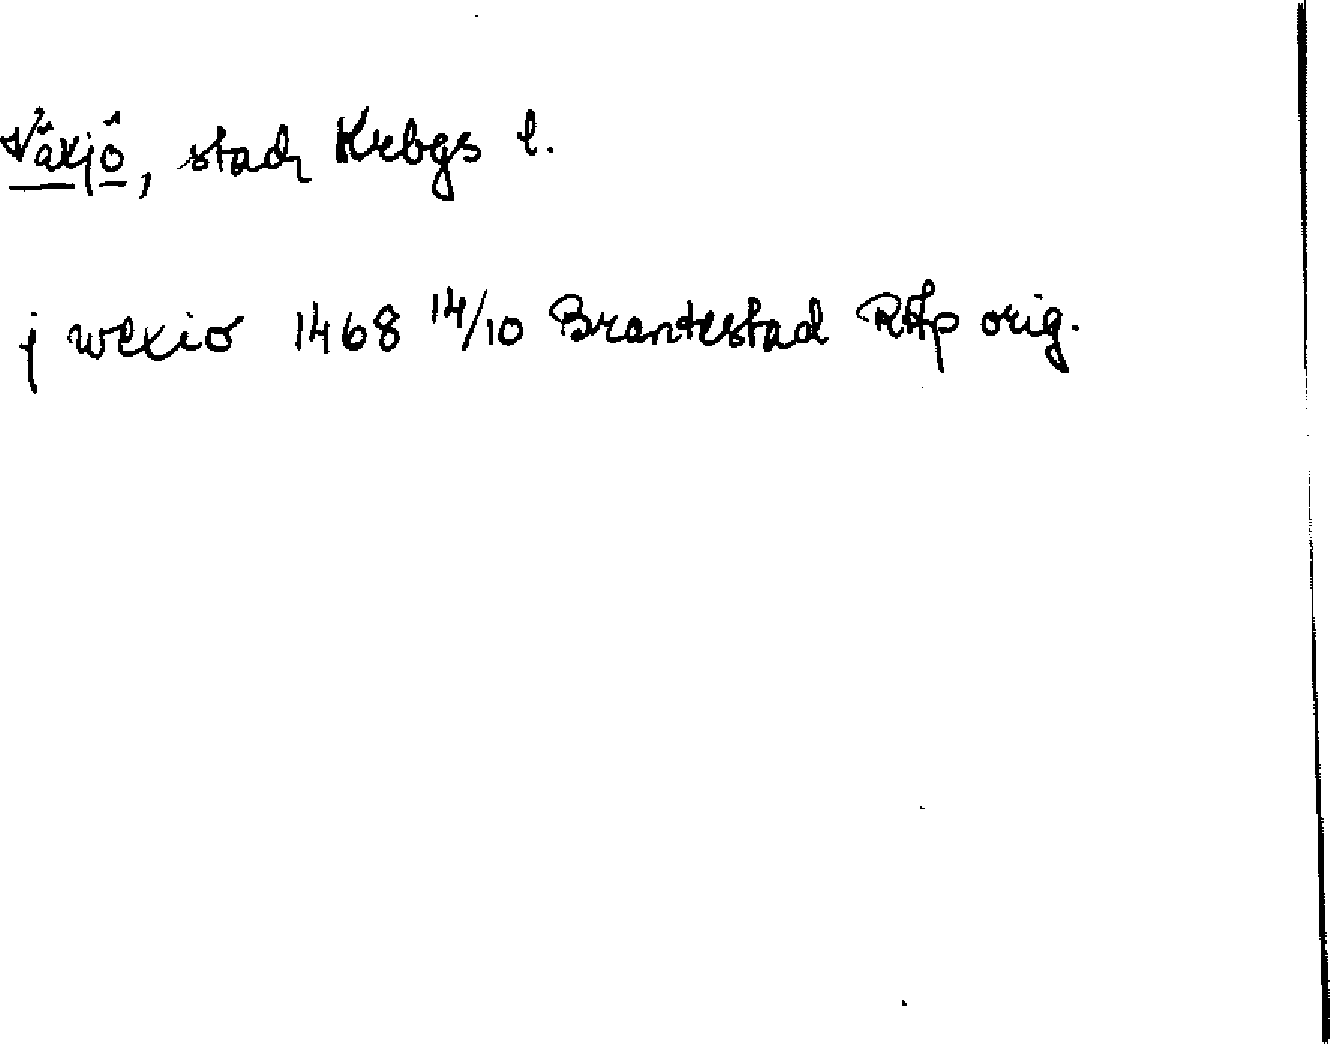 Växjö, stad, Krbgs l.
j wexio 1468 14/10 Brantestad RAp orig.